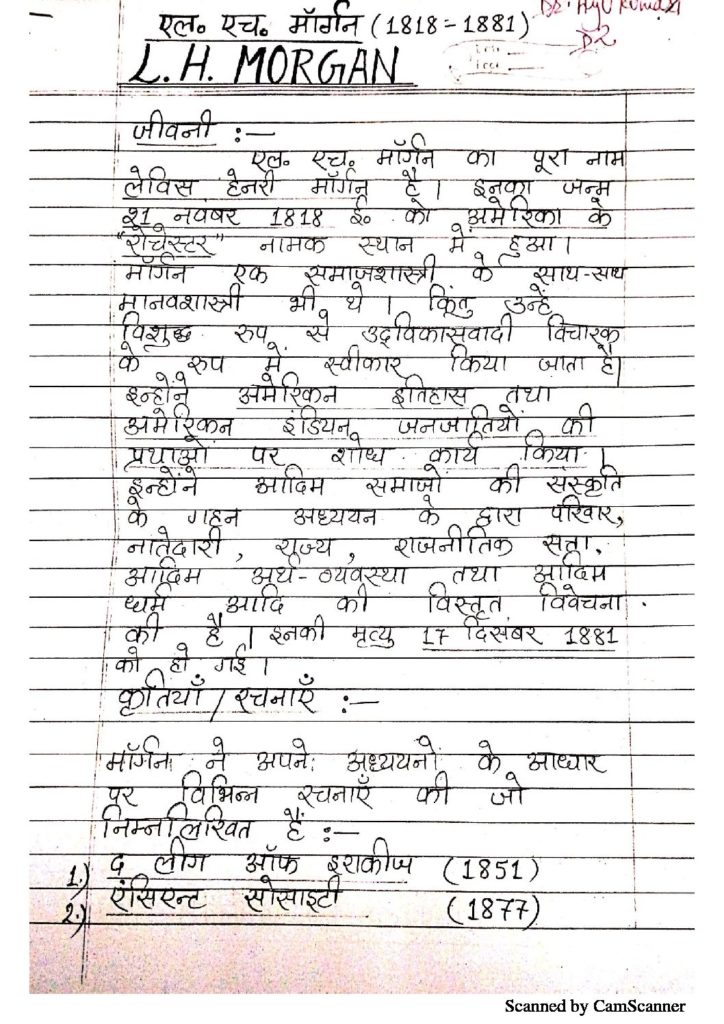 एल० एच० मॉर्गन (1818-1881)
L. H. MORGAN
जीवनी :-
एल० एच० मॉर्गन का पूरा नाम
लेविस हेनरी मॉर्गन है। इनका जन्म
21 नवंबर 1818 ई० को अमेरिका के
"रोचेस्टर" नामक स्थान में हुआ।
मॉर्गन एक समाजशास्त्री के साथ-साथ
मानवशास्त्री भी थे। किंतु उन्हें
विशुद्ध रूप से उद्विकासवादी विचारक
के रूप में स्वीकार किया जाता है।
इन्होंने अमेरिकन इतिहास तथा
अमेरिकन इंडियन जनजातियों की
प्रथाओं पर शोध कार्य किया।
इन्होंने आदिम समाजो की संस्कृति
के गहन अध्ययन के द्वारा परिवार,
नातेदारी, राज्य, राजनीतिक सत्ता,
आदिम अर्थ-व्यवस्था तथा आदिम
धर्म आदि की विस्तृत विवेचना
की है। इनकी मृत्यु 17 दिसंबर 1881
को हो गई।
कृतियाँ / रचनाएँ :-
मॉर्गन ने अपने अध्ययनों के आधार
पर विभिन्न रचनाएँ की जो
निम्नलिखित हैं :-
1.) द लीग ऑफ इराकीज (1851)
2.) एंसिएन्ट सोसाइटी (1877)
Scanned by CamScanner